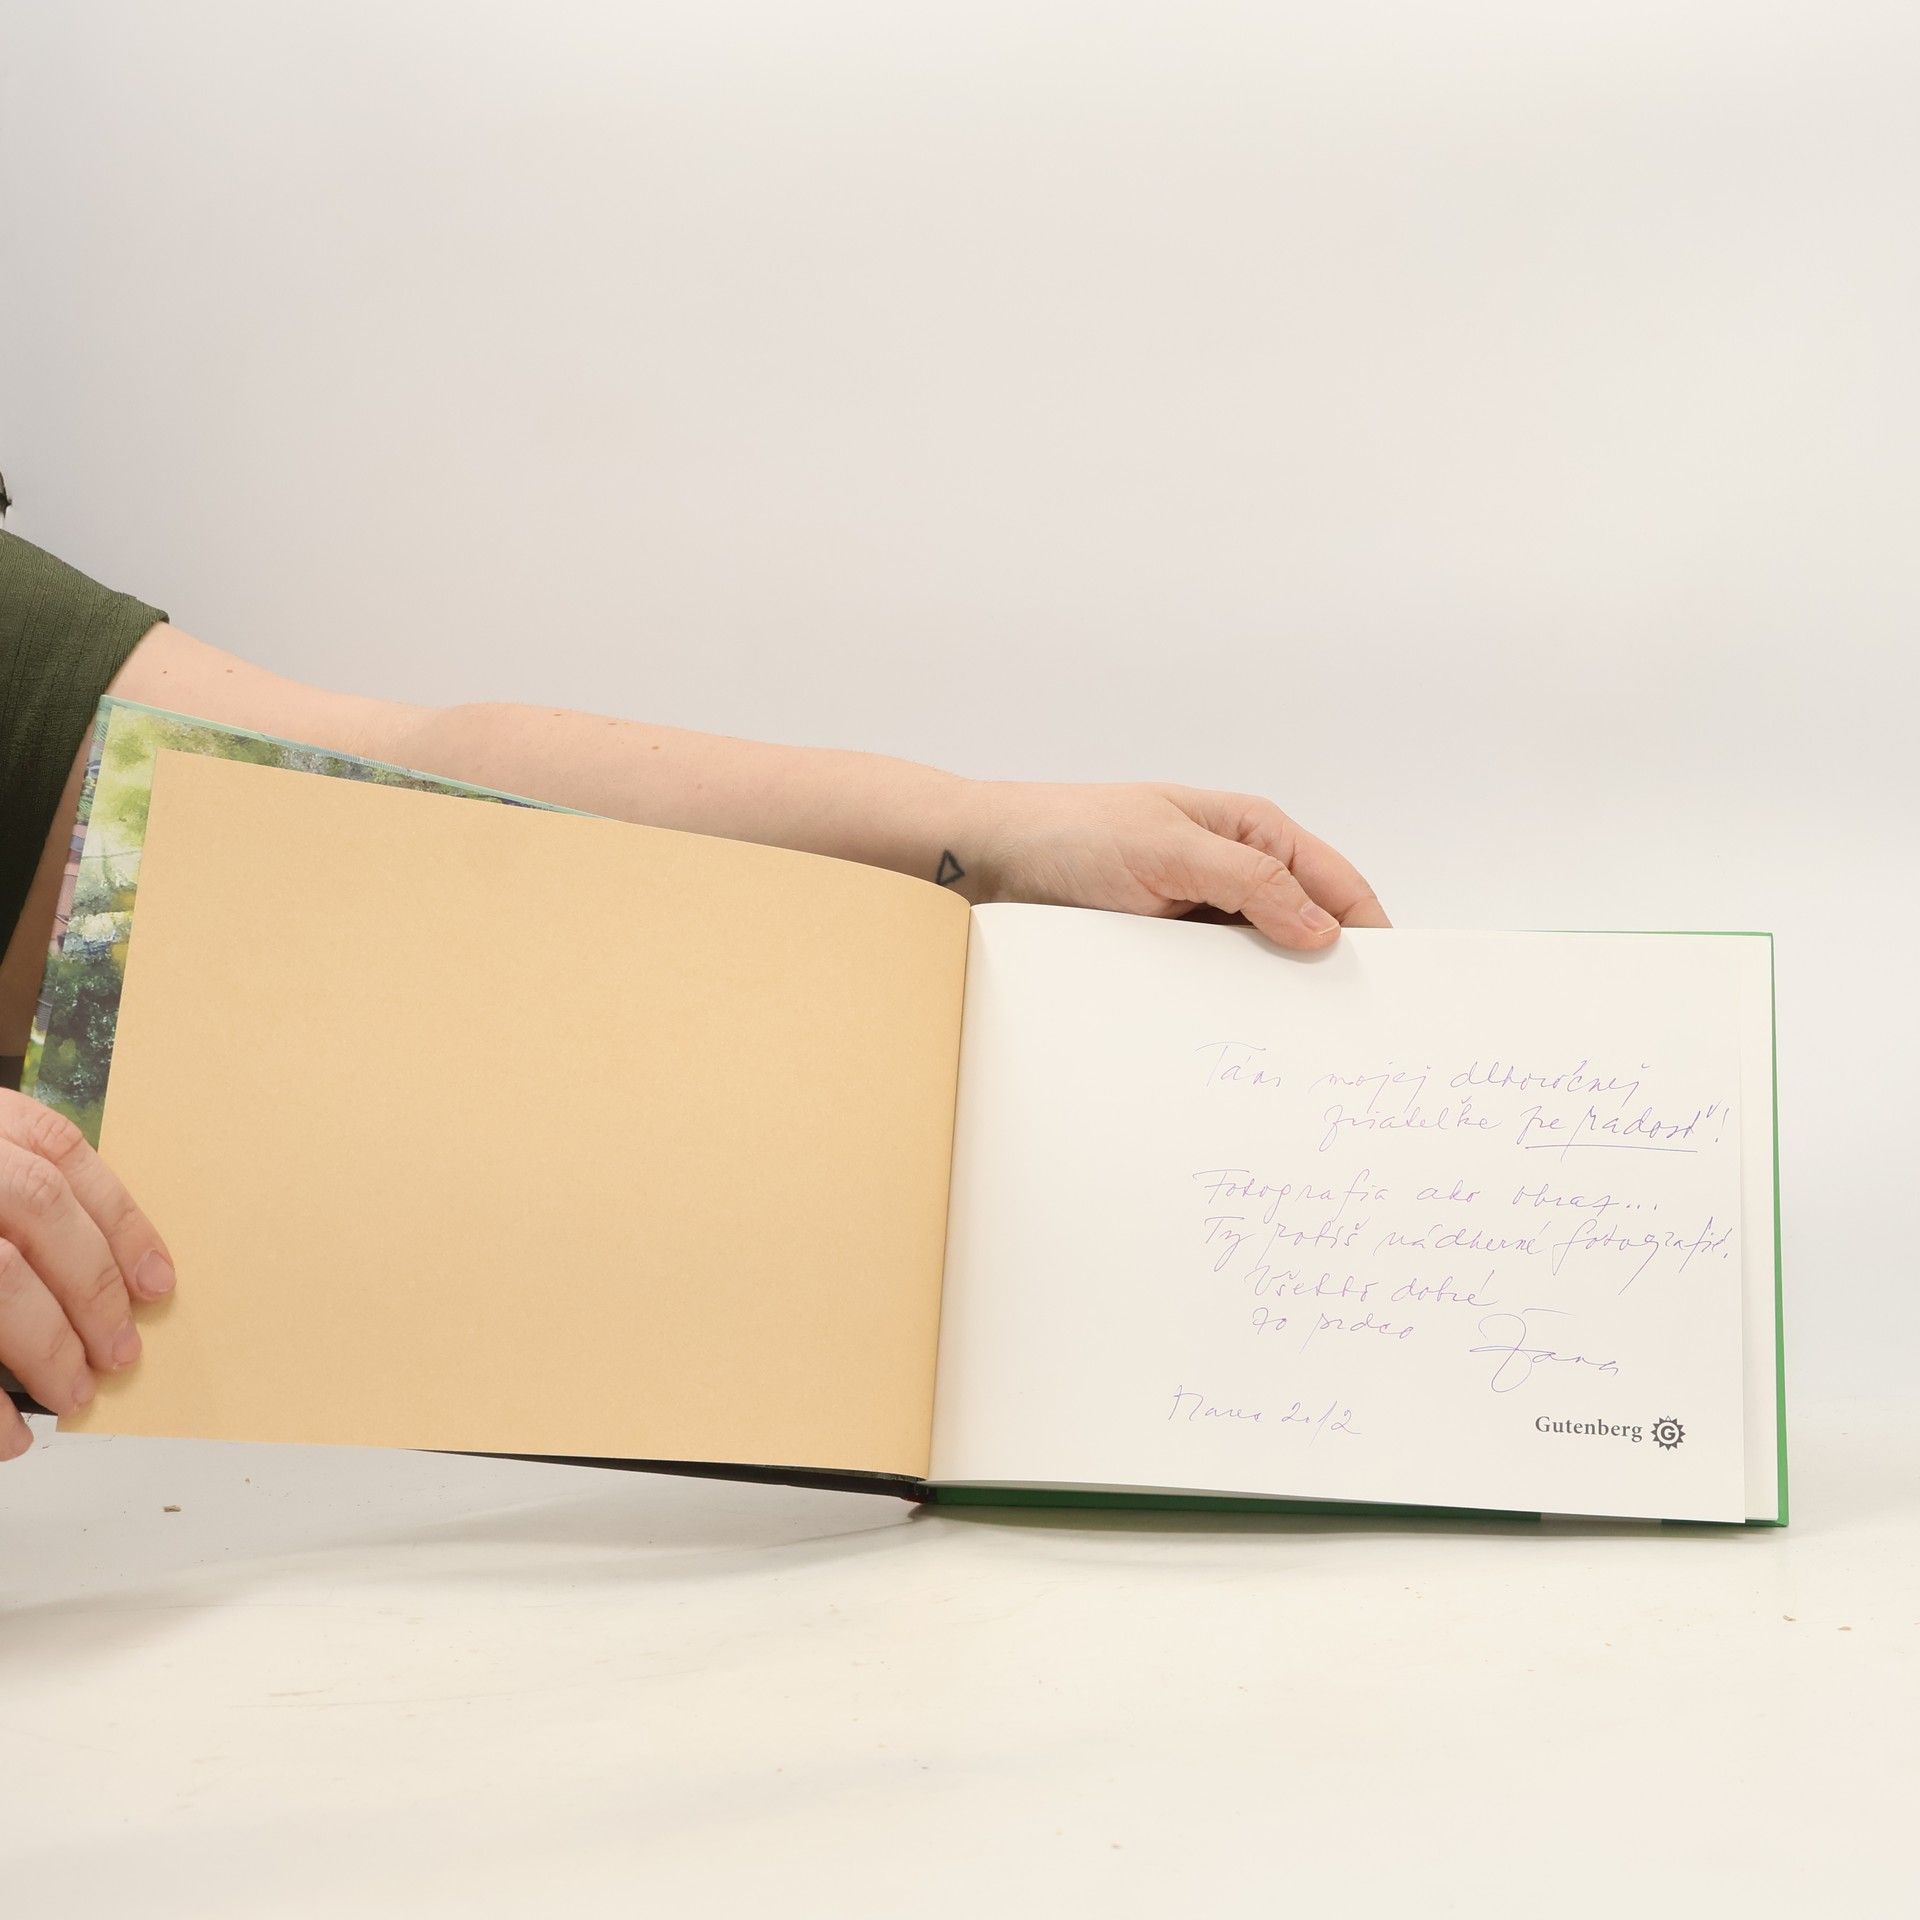 Táni mojej dlhoročnej
priateľke pre radosť!
Fotografia ako obraz...
Ty robíš nádherné fotografie.
Všetko dobré
zo srdca Jana
Marec 2012
Gutenberg G